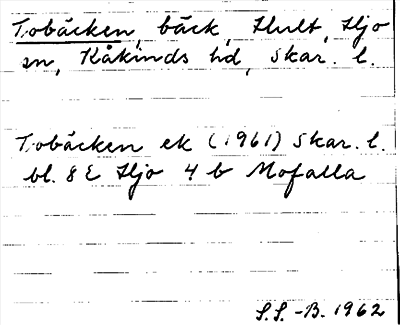 Tobäcken, bäck, Hult, Hjo
sn, Kåkinds hd, Skar. l.
Tobäcken ek (1961) Skar. l.
bl. 8 E Hjo 4 b Mofalla
S.S. -B. 1962